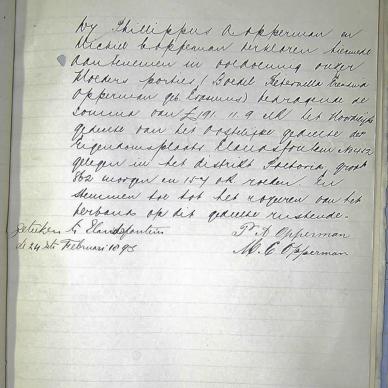 Wij Phillippus A Opperman en
Michiel C Opperman verklaren hiermede
aantenemen in voldoening onzer
Moeders portie (Boedel Petronella
Opperman geb Erasmus) bedragende de
somma van £191. 11. 9 het Noordelijk
gedeelte van het Oostelijke gedeelte der
Eigendomsplaats Elandsfontein No 412
gelegen in het distrikt Pretoria groot
862 morgen en 154 □R roeden. En
stemmen toe tot het royeren van het
verband op dit gedeelte rustende.
Geteekend te Elandsfontein
de 24ste Februari 1893
P. A Opperman
M. C Opperman